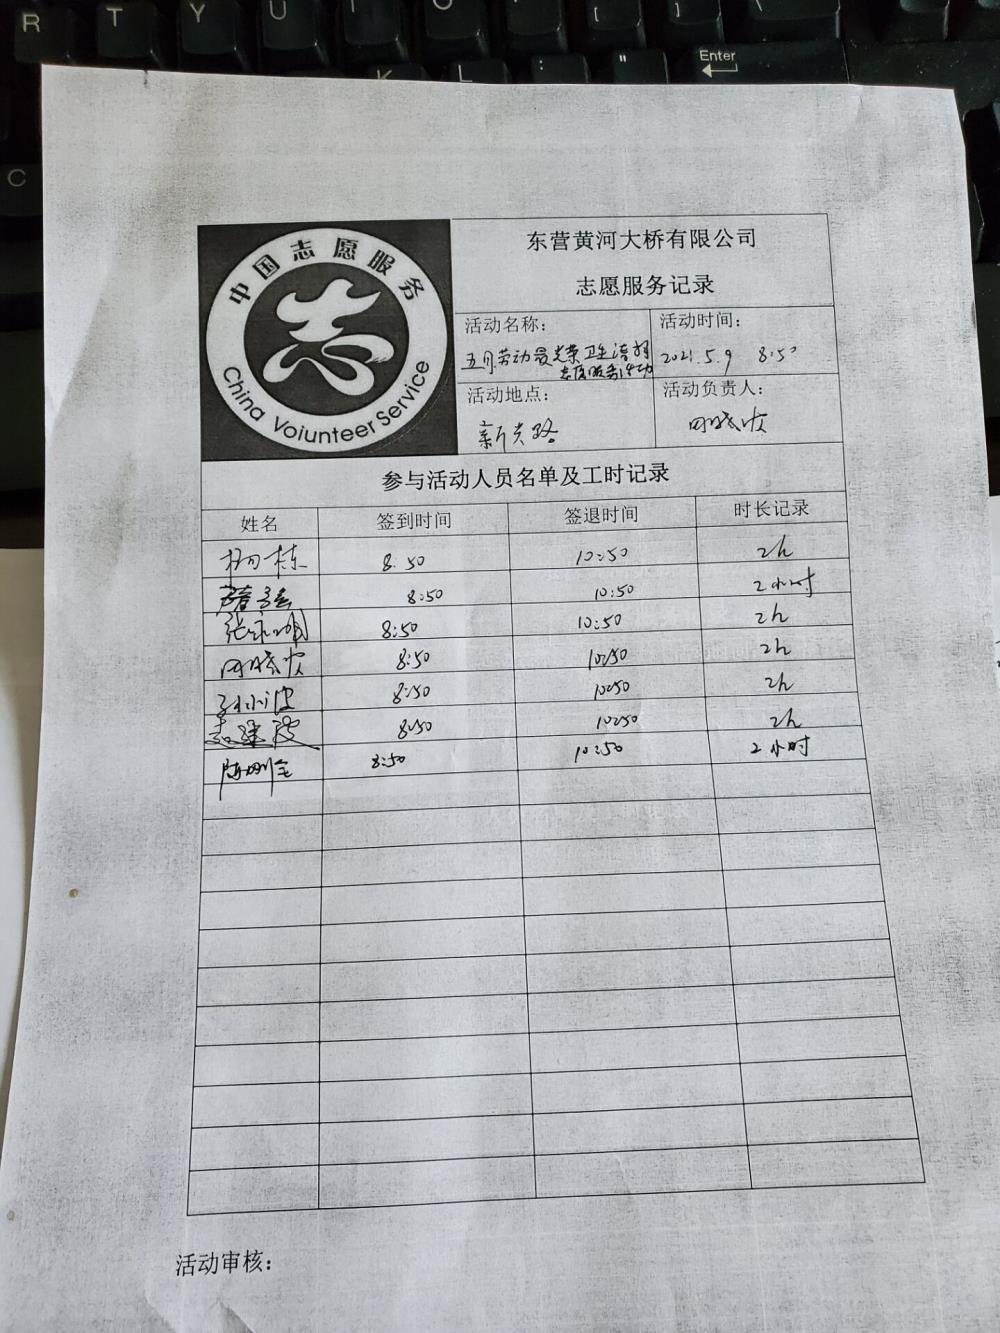 R T Y U I O
K L : " Enter
C
中国志愿服务
China Voiunteer Service
东营黄河大桥有限公司
志愿服务记录
活动名称：
五月劳动最光荣卫生清扫
志愿服务活动
活动时间：
2021.5.9 8:50
活动地点：
新兴路
活动负责人：
参与活动人员名单及工时记录
姓名 签到时间 签退时间 时长记录
杨栋 8:50 10:50 2h
8:50 10:50 2小时
张永明 8:50 10:50 2h
8:50 10:50 2h
孙小波 8:50 10:50 2h
8:50 10:50 2h
陈刚 8:50 10:50 2小时
活动审核：